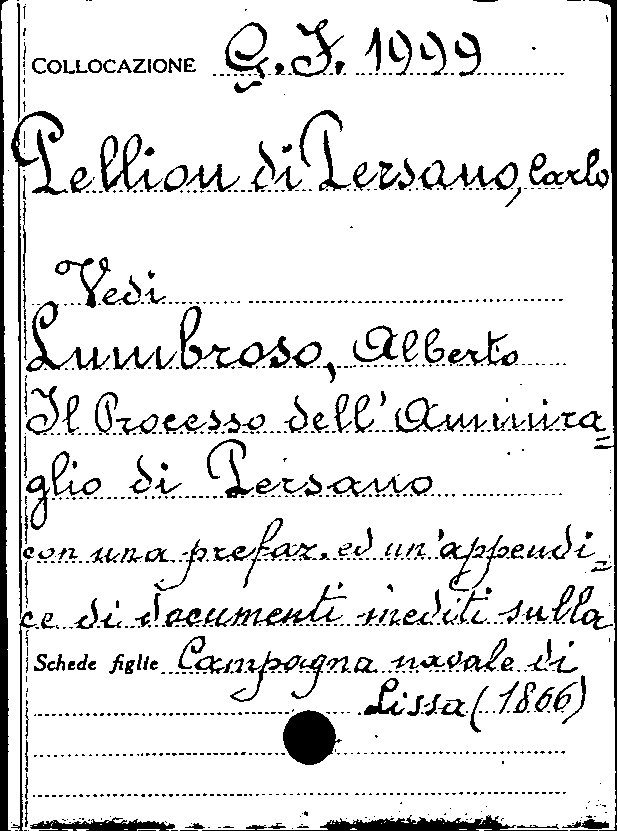 COLLOCAZIONE G.I. 1999
Pellion di Persano, Carlo
Vedi
Lumbroso, Alberto
Il Processo dell'Ammira=
glio di Persano
con una prefaz. ed un'appendi=
ce di documenti inediti sulla
Schede figlie Campagna navale di
Lissa (1866)